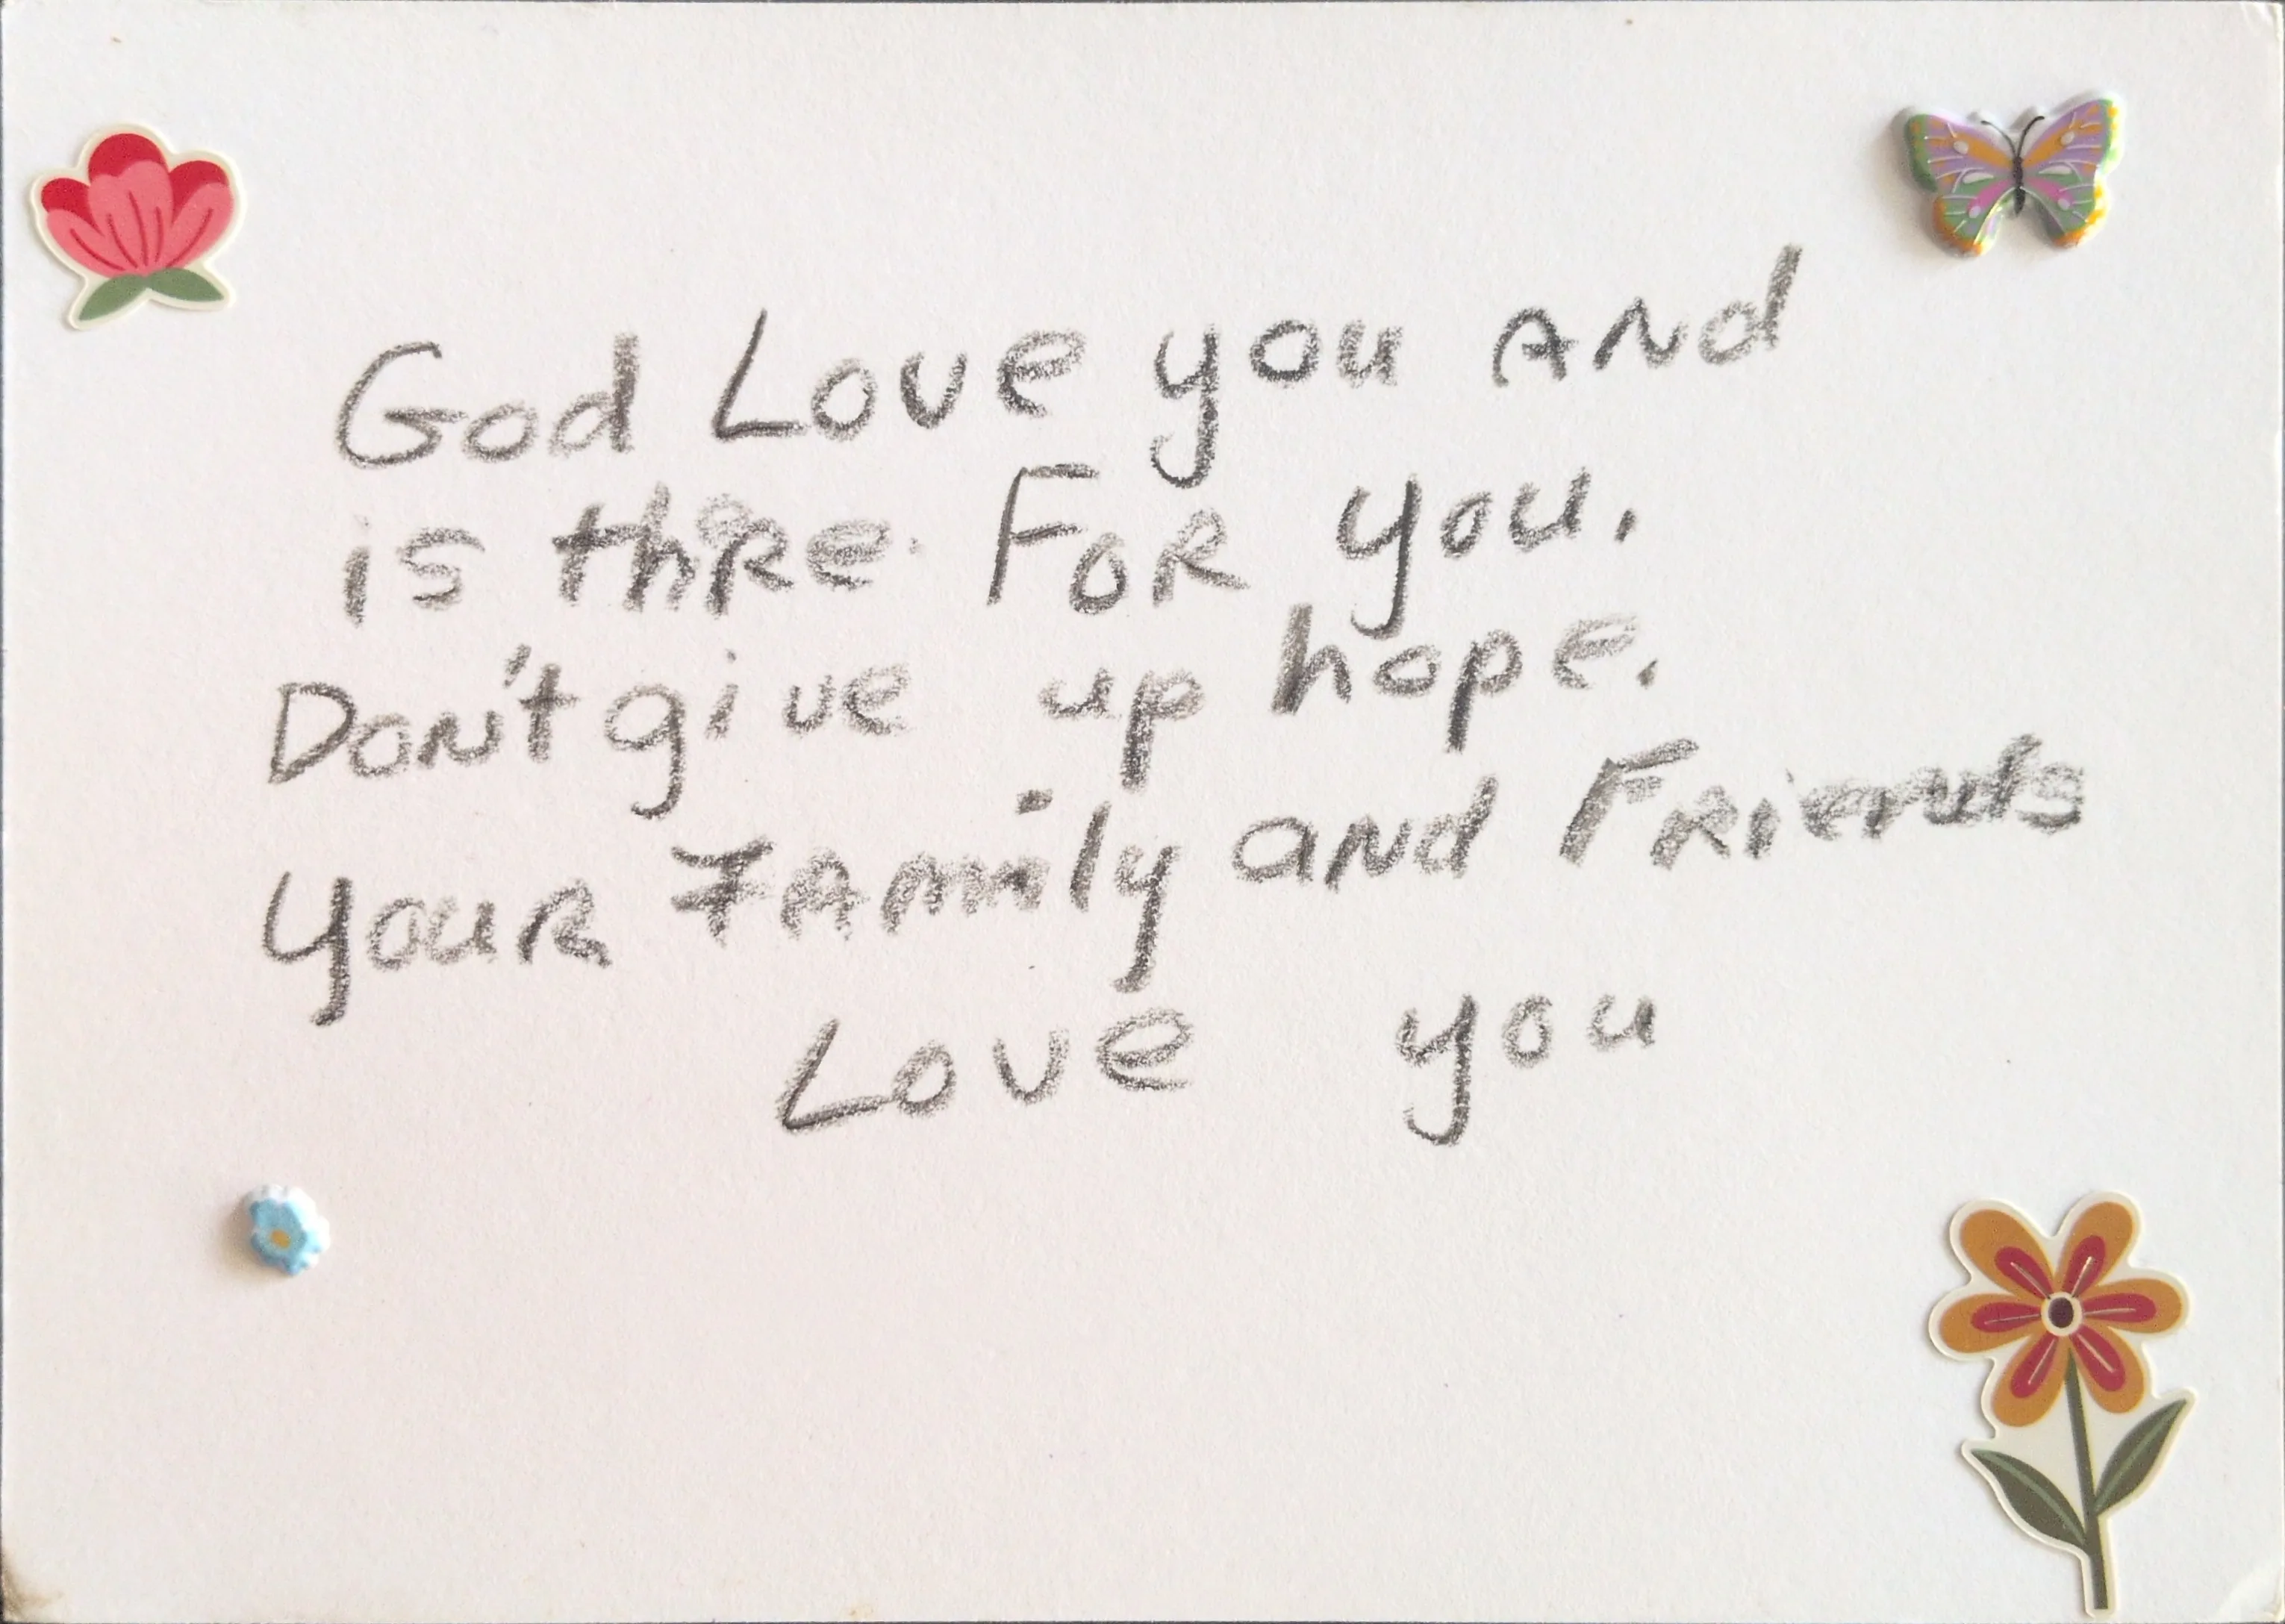 God Love you AND
is thRe. FOR you.
Don't give up hope.
youR FAmily and FRiends
Love you